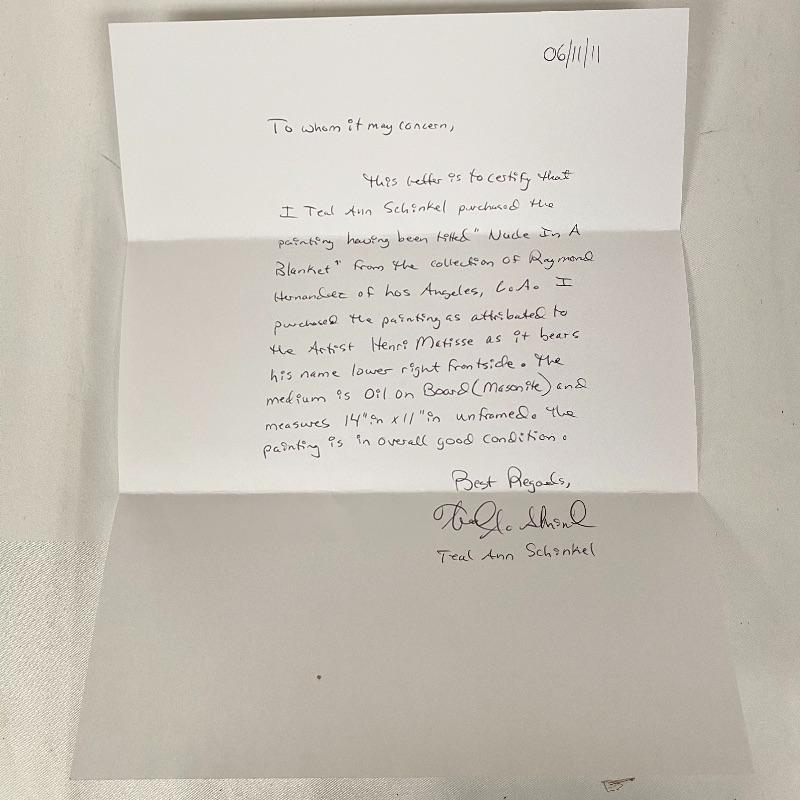 06/11/11
To whom it may concern,
this letter is to certify that
I Teal Ann Schinkel purchased the
painting having been titled "Nude In A
Blanket" from the collection of Raymond
Hernandez of Los Angeles, C.A. I
purchased the painting as attributed to
the Artist Henri Matisse as it bears
his name lower right frontside. The
medium is Oil on Board (Masonite) and
measures 14"in x 11"in unframed. The
painting is in overall good condition.
Best Regards,
Teal Ann Schinkel